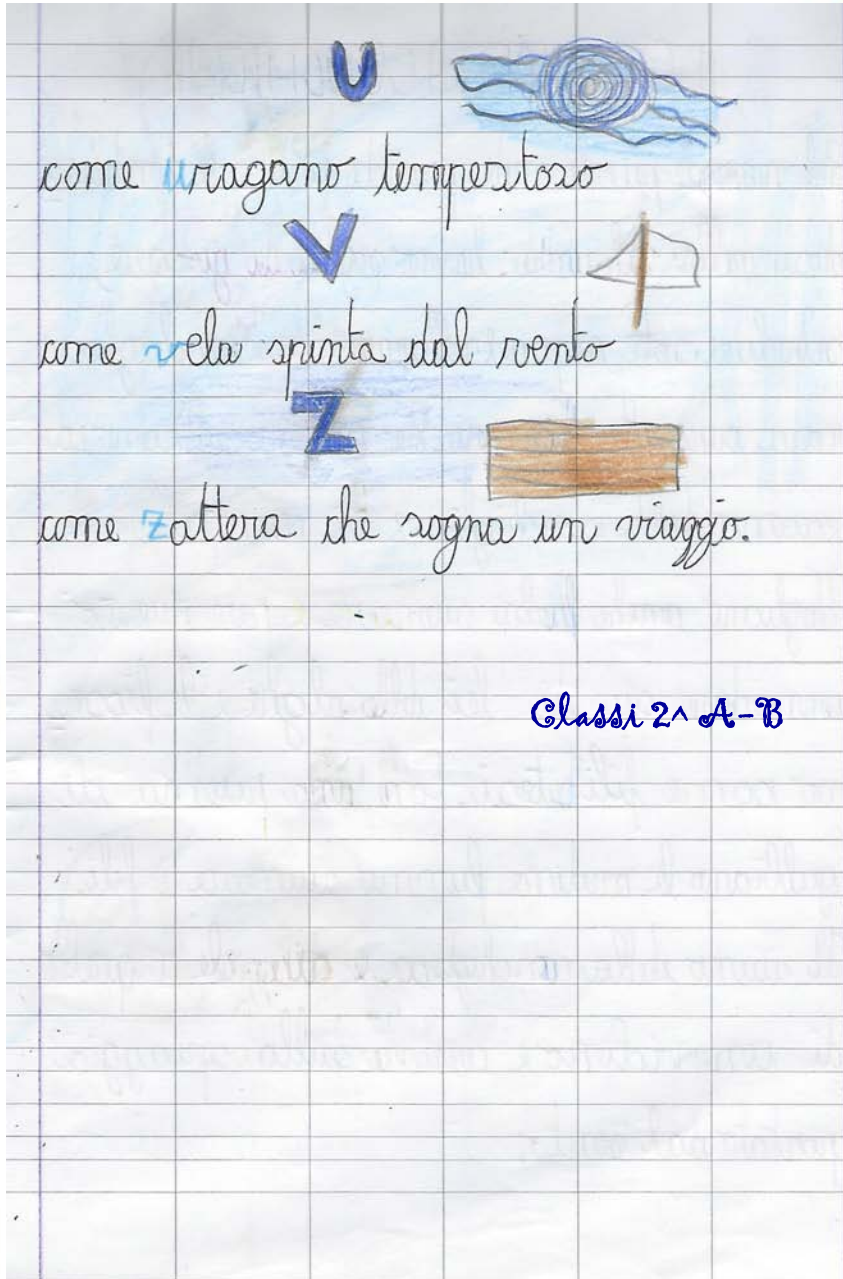 U
come uragano tempestoso
V
come vela spinta dal vento
Z
come zattera che sogna un viaggio.
Classi 2^ A-B